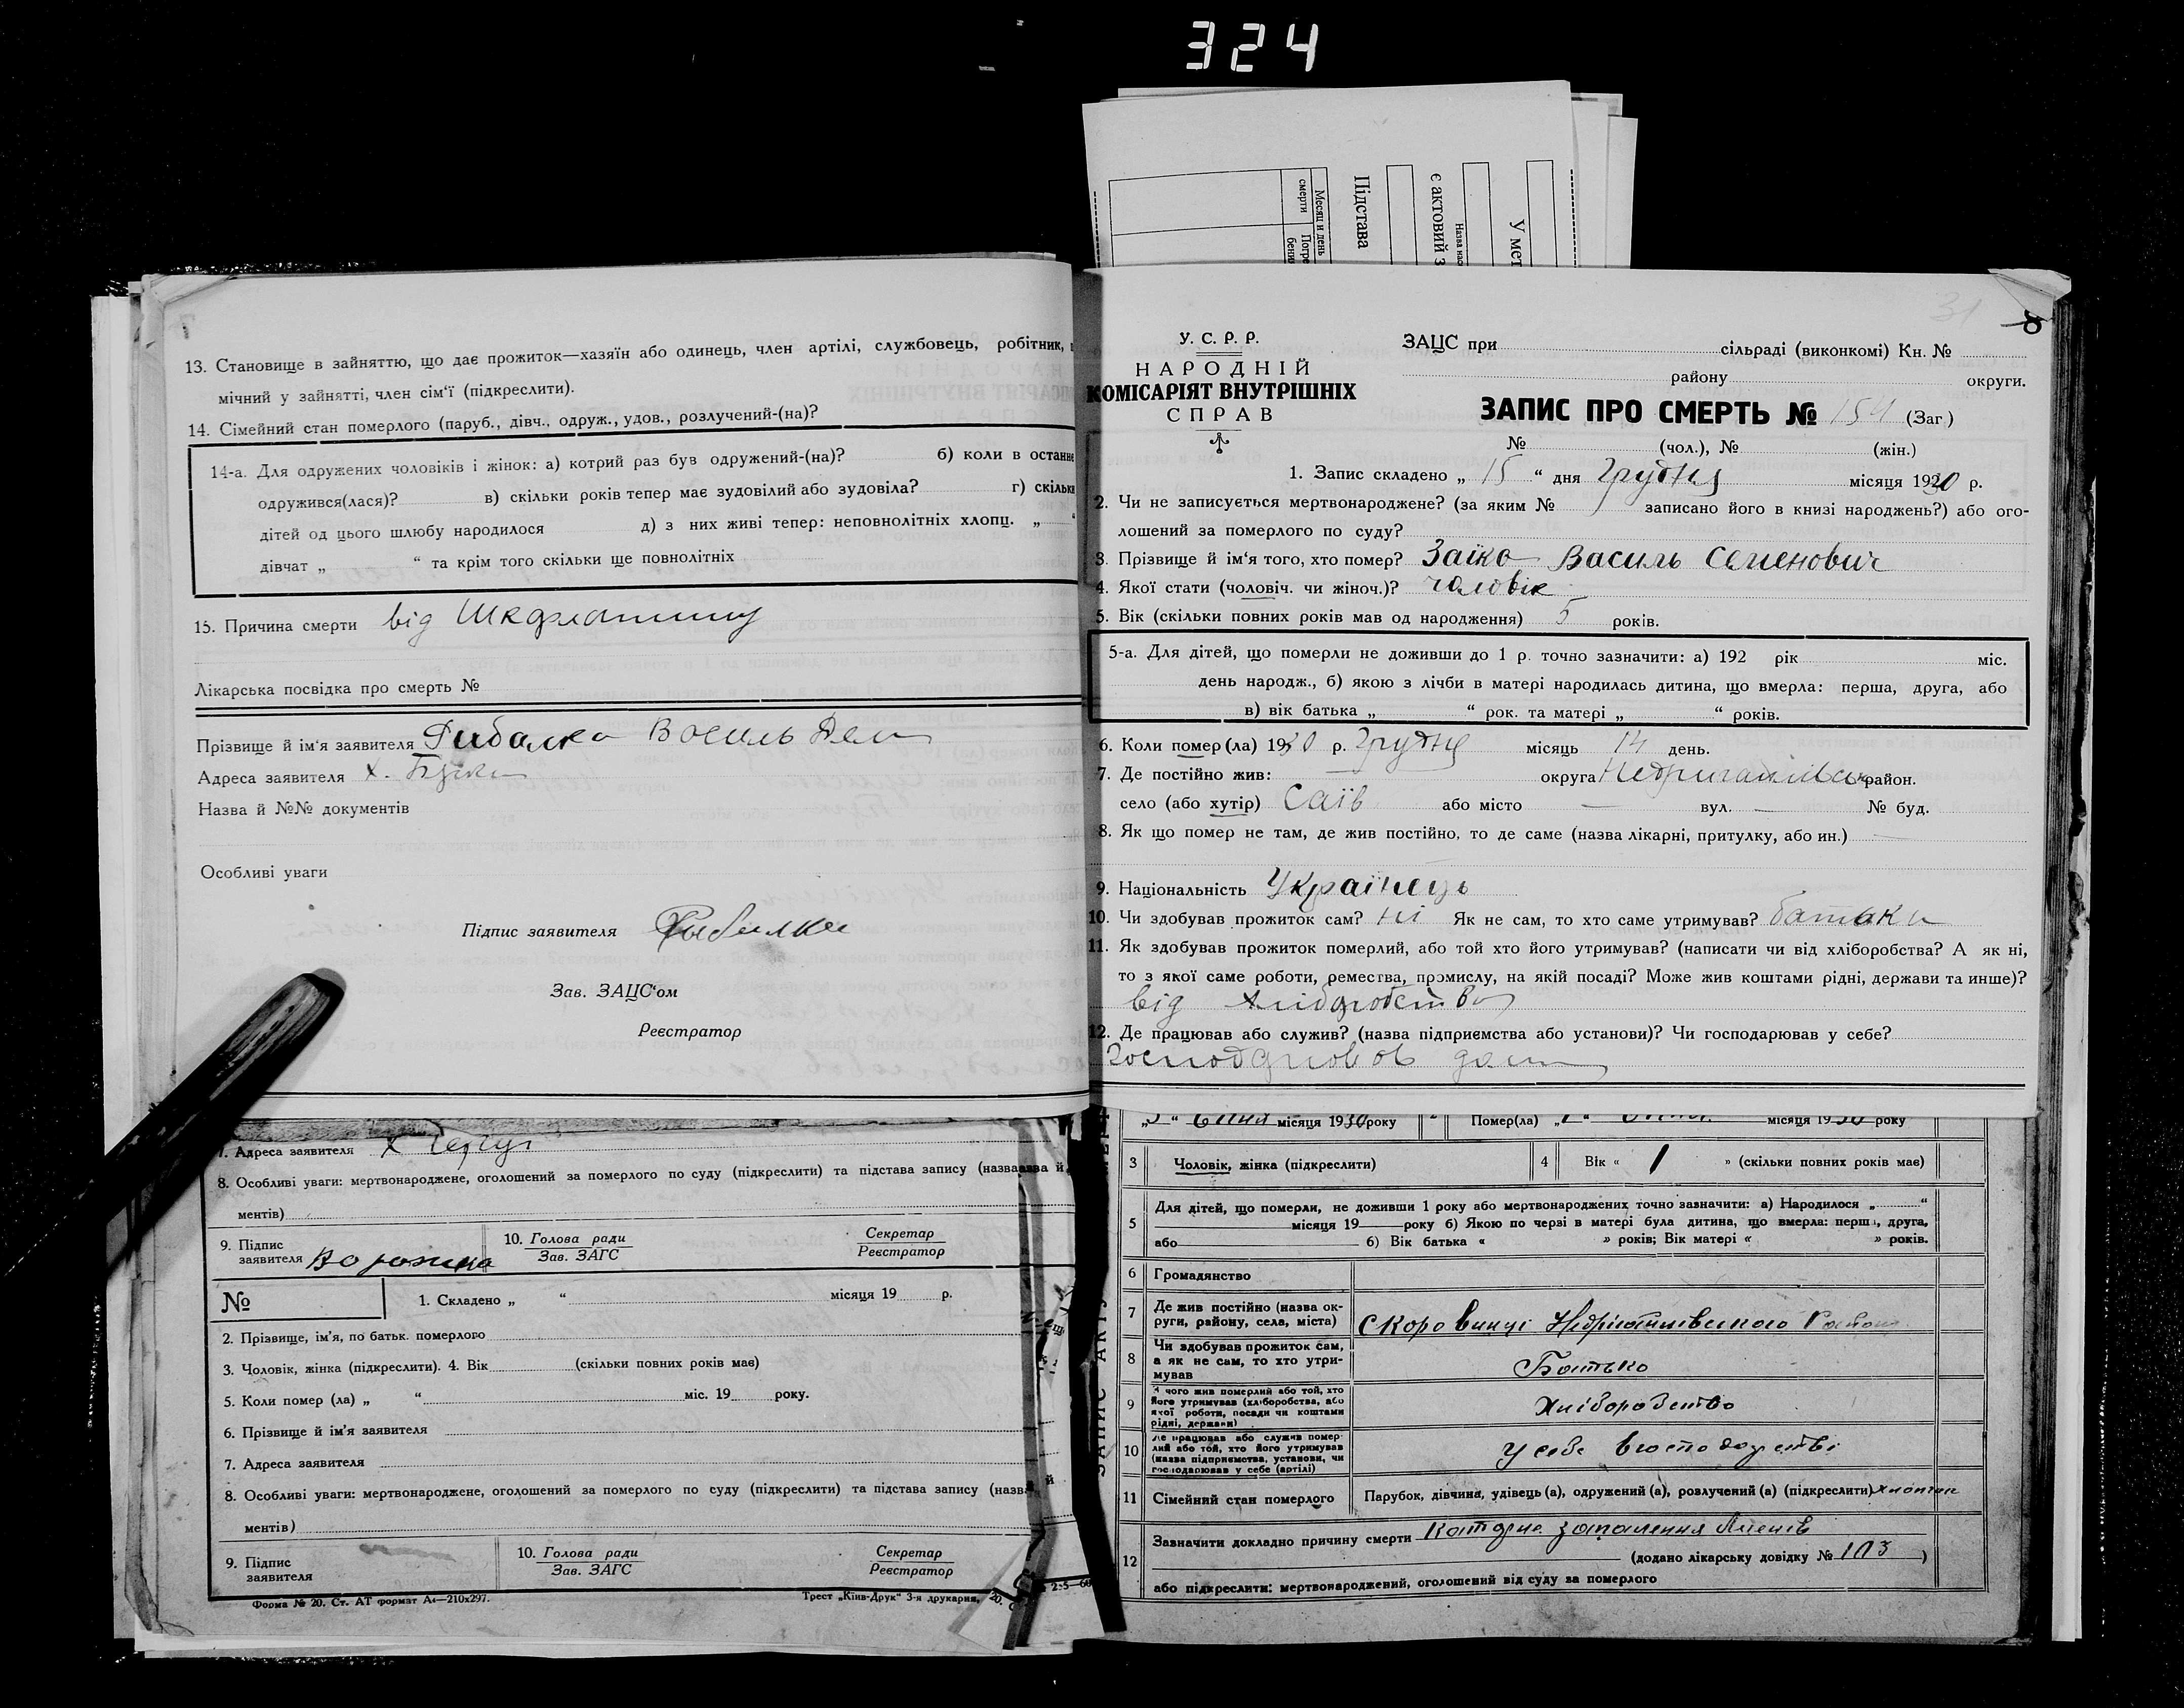 324
Месяц и день
смерти
Погре
бения
Підстава
є актовий з
Назва нас
У мет
7
13. Становище в зайняттю, що дає прожиток—хазяїн або одинець, член артілі, службовець, робітник,
мічний у зайнятті, член сім'ї (підкреслити).
14. Сімейний стан померлого (паруб., дівч., одруж., удов., розлучений-(на)?
14-а. Для одружених чоловіків і жінок: а) котрий раз був одружений-(на)? б) коли в останнє
одружився(лася)? в) скільки років тепер має зудовілий або зудовіла? г) скільки
дітей од цього шлюбу народилося д) з них живі тепер: неповнолітніх хлопц. „ “
дівчат „ “ та крім того скільки ще повнолітніх
15. Причина смерти від Шкарлатини
Лікарська посвідка про смерть №
Прізвище й ім'я заявителя Рибалка Василь
Адреса заявителя х.
Назва й №№ документів
Особливі уваги
Підпис заявителя Рыбалка
Зав. ЗАЦС'ом
Реєстратор
31 8
У. С. Р. Р.
НАРОДНІЙ
КОМІСАРІЯТ ВНУТРІШНІХ
СПРАВ
ЗАЦС при сільраді (виконкомі) Кн. №
району округи.
ЗАПИС ПРО СМЕРТЬ № 154 (Заг.)
№ (чол.), № (жін.)
1. Запис складено „ 15 “ дня грудня місяця 1930 р.
2. Чи не записується мертвонароджене? (за яким № записано його в книзі народжень?) або ого-
лошений за померлого по суду?
3. Прізвище й ім'я того, хто помер? Заїка Василь Семенович
4. Якої стати (чоловіч. чи жіноч.)? чоловік
5. Вік (скільки повних років мав од народження) 5 років.
5-а. Для дітей, що померли не доживши до 1 р. точно зазначити: а) 192 рік міс.
день народж., б) якою з лічби в матері народилась дитина, що вмерла: перша, друга, або
в) вік батька „ “ рок. та матері „ “ років.
6. Коли помер (ла) 1930 р. грудня місяць 14 день.
7. Де постійно жив: округа Недригайлівськ район.
село (або хутір) Саїв або місто — вул. — № буд.
8. Як що помер не там, де жив постійно, то де саме (назва лікарні, притулку, або ин.) —
9. Національність Українець
10. Чи здобував прожиток сам? ні Як не сам, то хто саме утримував? батьки
11. Як здобував прожиток померлий, або той хто його утримував? (написати чи від хліборобства? А як ні,
то з якої саме роботи, ремества, промислу, на якій посаді? Може жив коштами рідні, держави та инше)?
від хліборобства
12. Де працював або служив? (назва підприємства або установи)? Чи господарював у себе?
господарював дома
7. Адреса заявителя х
8. Особливі уваги: мертвонароджене, оголошений за померлого по суду (підкреслити) та підстава запису (назва й
ментів)
9. Підпис
заявителя
10. Голова ради
Зав. ЗАГС
Секретар
Реєстратор
№
1. Складено „ “ місяця 19 р.
2. Прізвище, ім'я, по батьк. померлого
3. Чоловік, жінка (підкреслити). 4. Вік (скільки повних років має)
5. Коли помер (ла) „ “ міс. 19 року.
6. Прізвище й ім'я заявителя
7. Адреса заявителя
8. Особливі уваги: мертвонароджене, оголошений за померлого по суду (підкреслити) та підстава запису (назва й
ментів)
9. Підпис
заявителя
10. Голова ради
Зав. ЗАГС
Секретар
Реєстратор
Форма № 20. Ст. АТ формат А4—210х297.
Трест „Київ-Друк“ 3-я друкарня,
місяця 1930 року Помер(ла) місяця 1930 року
3 Чоловік, жінка (підкреслити) 4 Вік « 1 » (скільки повних років має)
5 Для дітей, що померли, не доживши 1 року або мертвонароджених точно зазначити: а) Народилося „ “
місяця 19 року б) Якою по черзі в матері була дитина, що вмерла: перша, друга,
або б) Вік батька « » років; Вік матері « » років.
6 Громадянство
7 Де жив постійно (назва ок-
руги, району, села, міста) Недригайлівського
8 Чи здобував прожиток сам,
а як не сам, то хто утри-
мував Батько
9 З чого жив померлий або той, хто
його утримував (хліборобства, або
якої роботи, посади чи коштами
рідні, держави) Хліборобство
10 Де працював або служив помер-
лий або той, хто його утримував
(назва підприємства, установи, чи
господарював у себе (артілі) У себе в господарстві
11 Сімейний стан померлого Парубок, дівчина, удівець (а), одружений (а), розлучений (а) (підкреслити)
12 Зазначити докладно причину смерти запалення
(додано лікарську довідку № 103 )
або підкреслити: мертвонароджений, оголошений від суду за померлого